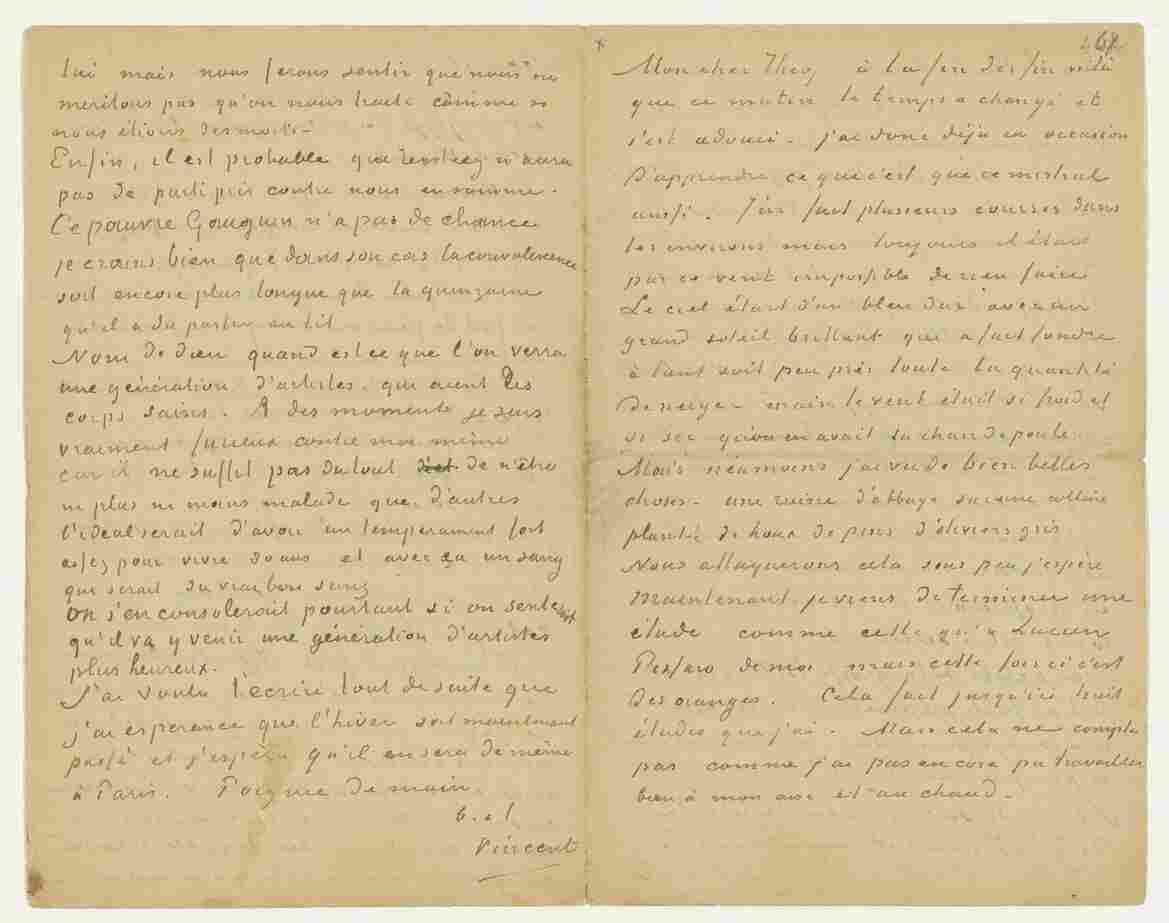 lui mais nous ferons sentir que nous ne
meritons pas qu'on nous traite comme si
nous étions des morts -
Enfin, il est probable que Tersteeg n'aura
pas de parti pris contre nous en somme.
Ce pauvre Gauguin n'a pas de chance
je crains bien que dans son cas la convalescence
soit encore plus longue que la quinzaine
qu'il a du passer au lit
Nom de dieu quand est ce que l'on verra
une génération d'artistes qui aient des
corps sains. A des moments je suis
vraiment furieux contre moi même
car il ne suffit pas du tout de n'être
ni plus ni moins malade que d'autres
l'ideal serait d'avoir un temperament fort
assez pour vivre 80 ans et avec ça un sang
qui serait du vrai bon sang
On s'en consolerait pourtant si on sentait
qu'il va y venir une génération d'artistes
plus heureux.
J'ai voulu t'écrire tout de suite que
j'ai esperance que l'hiver soit maintenant
passé et j'espère qu'il en sera de même
à Paris. Poignee de main.
t. à t
Vincent
467
Mon cher Theo, à la fin des fin voilà
que ce matin le temps a changé et
s'est adouci - j'ai donc déjà eu occasion
d'apprendre ce que c'est que ce mistral
aussi. J'ai fait plusieurs courses dans
les environs mais toujours il était
par ce vent impossible de rien faire
Le ciel était d'un bleu dur avec un
grand soleil brillant qui a fait fondre
à tant soit peu près toute la quantité
de neige - mais le vent était si froid et
si sec qu'on en avait la chair de poule.
Mais néanmoins j'ai vu de bien belles
choses - une ruine d'abbaye sur une colline
plantée de houx de pins d'oliviers gris
Nous attaquerons cela sous peu j'espère
Maintenant je viens de terminer une
étude comme celle qu'a Lucien
Pissaro de moi mais cette fois ci c'est
des oranges. Cela fait jusqu'ici huit
études que j'ai. Mais cela ne compte
pas comme j'ai pas encore pu travailler
bien à mon aise et au chaud -